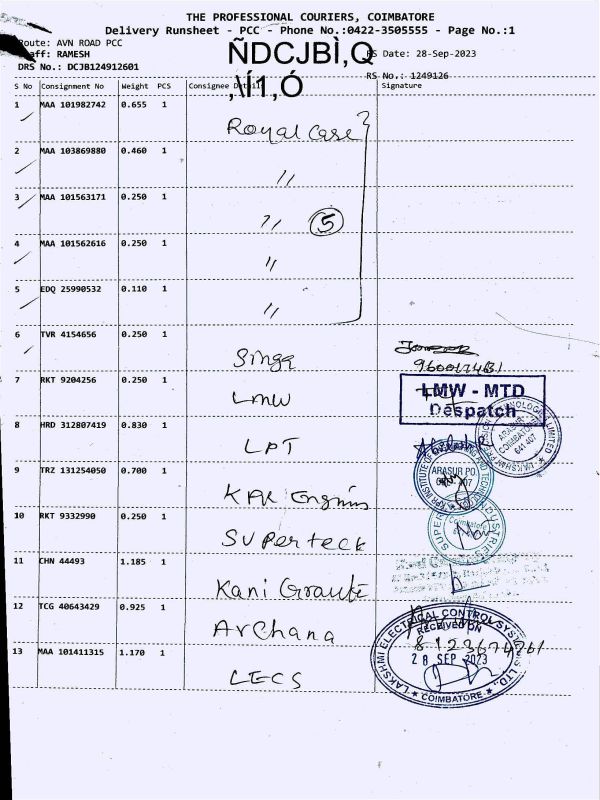 THE PROFESSIONAL COURIERS, COIMBATORE
Delivery Runsheet - PCC - Phone No.:0422-3505555 - Page No.:1
Route: AVN ROAD PCC
Staff: RAMESH
DRS No.: DCJB124912601
ÑDCJBÌ,Q
,\Í1,Ó
RS Date: 28-Sep-2023
RS No.: 1249126
S No Consignment No Weight PCS Consignee Details Signature
1 MAA 101982742 0.655 1
Royal Case
2 MAA 103869880 0.460 1
"
3 MAA 101563171 0.250 1
" 5
4 MAA 101562616 0.250 1
"
5 EDQ 25990532 0.110 1
"
6 TVR 4154656 0.250 1
Singa
7 RKT 9204256 0.250 1
LMW
LMW - MTD
Despatch
8 HRD 312807419 0.830 1
LPT
ARASUR
COIMBATORE
641 407
9 TRZ 131254050 0.700 1
KPR Engniis
ARASUR PO
10 RKT 9332990 0.250 1
SUPerteck
Coimbatore
11 CHN 44493 1.185 1
Kani Graute
12 TCG 40643429 0.925 1
Archana
13 MAA 101411315 1.170 1
LECS
LAKSHMI ELECTRICAL CONTROL SYSTEMS LTD.,
RECEIVED ON
28 SEP 2023
COIMBATORE